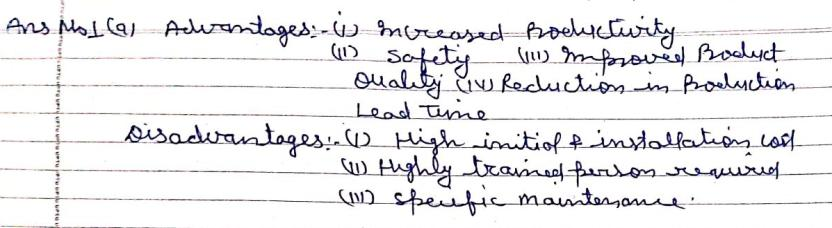 Ans No 1 (a) Advantages:- (i) Increased Productivity
(ii) Safety (iii) Improved Product
Quality (iv) Reduction in Production
Lead Time
Disadvantages:- (i) High initial & installation cost
(ii) Highly trained person required
(iii) Specific maintenance.